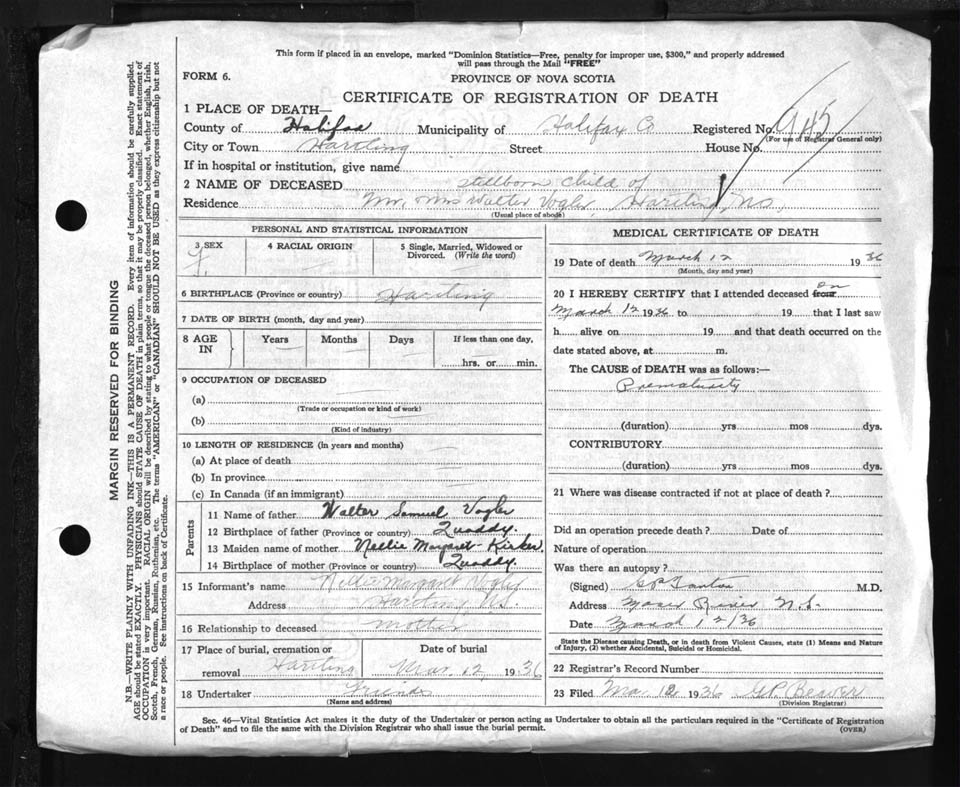 This form if placed in an envelope, marked "Dominion Statistics—Free, penalty for improper use, $300," and properly addressed
will pass through the Mail "FREE"
FORM 6.
PROVINCE OF NOVA SCOTIA
CERTIFICATE OF REGISTRATION OF DEATH
1 PLACE OF DEATH—
County of Halifax Municipality of Halifax Co Registered No. 945
(For use of Registrar General only)
City or Town Hartling Street House No.
If in hospital or institution, give name
2 NAME OF DECEASED stillborn child of
Residence Mr. Mrs Walter Vogler, Hartling, N.S.
(Usual place of abode)
PERSONAL AND STATISTICAL INFORMATION
3 SEX 4 RACIAL ORIGIN 5 Single, Married, Widowed or
Divorced. (Write the word)
F.
6 BIRTHPLACE (Province or country) Hartling
7 DATE OF BIRTH (month, day and year)
8 AGE IN Years Months Days If less than one day.
hrs. or min.
9 OCCUPATION OF DECEASED
(a)
(Trade or occupation or kind of work)
(b)
(Kind of industry)
10 LENGTH OF RESIDENCE (in years and months)
(a) At place of death
(b) In province
(c) In Canada (if an immigrant)
Parents
11 Name of father Walter Samuel Vogler
12 Birthplace of father (Province or country) Quoddy.
13 Maiden name of mother Nellie Margaret
14 Birthplace of mother (Province or country) Quoddy.
15 Informant's name Nellie Margaret Vogler
Address Hartling N.S.
16 Relationship to deceased mother
17 Place of burial, cremation or Date of burial
removal Hartling Mar. 12 1936
18 Undertaker Friends
(Name and address)
MEDICAL CERTIFICATE OF DEATH
19 Date of death March 12 1936
(Month, day and year)
20 I HEREBY CERTIFY that I attended deceased from on
March 12 1936 to 19 that I last saw
h alive on 19 and that death occurred on the
date stated above, at m.
The CAUSE of DEATH was as follows:—
Prematurity
(duration) yrs mos dys.
CONTRIBUTORY
(duration) yrs mos dys.
21 Where was disease contracted if not at place of death?
Did an operation precede death? Date of
Nature of operation
Was there an autopsy?
(Signed) M.D.
Address Moser River N.S.
Date March 12/36
State the Disease causing Death, or in death from Violent Causes, state (1) Means and Nature
of Injury, (2) whether Accidental, Suicidal or Homicidal.
22 Registrar's Record Number
23 Filed Mar. 12 1936 Beaver
(Division Registrar)
Sec. 46—Vital Statistics Act makes it the duty of the Undertaker or person acting as Undertaker to obtain all the particulars required in the "Certificate of Registration
of Death" and to file the same with the Division Registrar who shall issue the burial permit.
(OVER)
MARGIN RESERVED FOR BINDING
N.B.—WRITE PLAINLY WITH UNFADING INK—THIS IS A PERMANENT RECORD. Every item of information should be carefully supplied.
AGE should be stated EXACTLY. PHYSICIANS should STATE CAUSE OF DEATH in plain terms, so that it may be properly classified. Exact statement of
OCCUPATION is very important. RACIAL ORIGIN will be described by stating to what people or tongue the deceased person belonged, whether English, Irish,
Scotch, French, German, Russian, Ruthenian, etc. The terms "AMERICAN" or "CANADIAN" SHOULD NOT BE USED as they express citizenship but not
a race or people. See instructions on back of Certificate.